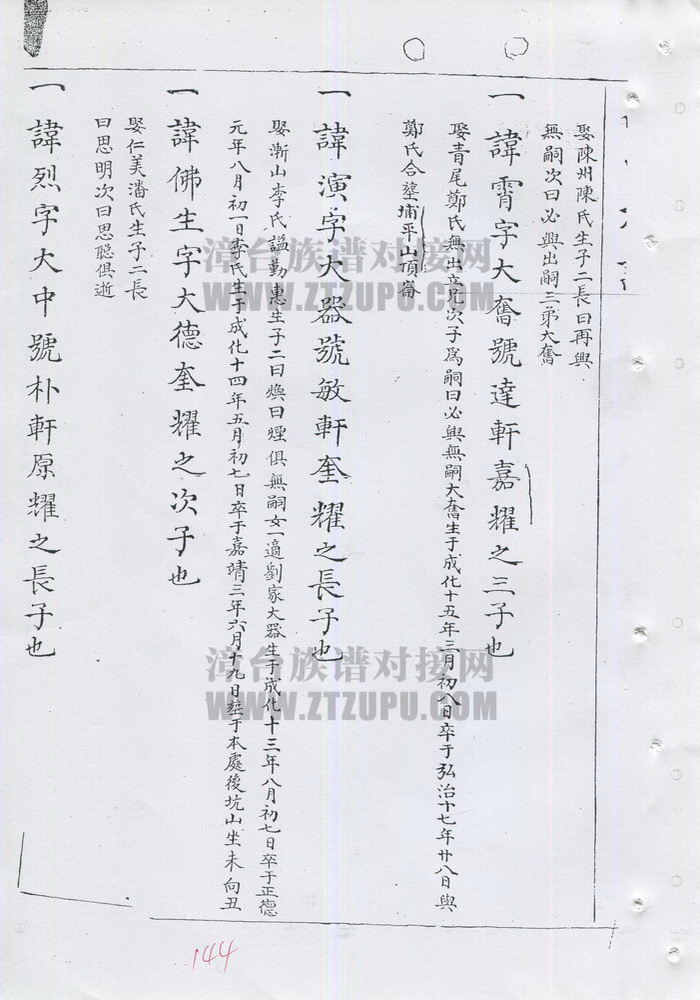 娶陳州陳氏生子二長曰再興
無嗣次曰必興出嗣三弟大奮
一諱霄字大奮號達軒嘉耀之三子也
娶青尾鄭氏無出立兄次子為嗣曰必興無嗣大奮生于成化十五年三月初八日卒于弘治十七年廿八日與
鄭氏合塟埔平山頂崙
一諱演字大器號敏軒奎耀之長子也
娶漸山李氏謚勤惠生子二曰煥曰煙俱無嗣女一適劉家大器生于成化十三年八月初七日卒于正德
元年八月初一日李氏生于成化十四年五月初七日卒于嘉靖三年六月十九日塟于本處後坑山坐未向丑
一諱佛生字大德奎耀之次子也
娶仁美潘氏生子二長
曰思明次曰思聰俱逝
一諱烈字大中號朴軒原耀之長子也
漳台族谱对接网
WWW.ZTZUPU.COM
漳台族谱对接网
WWW.ZTZUPU.COM
144